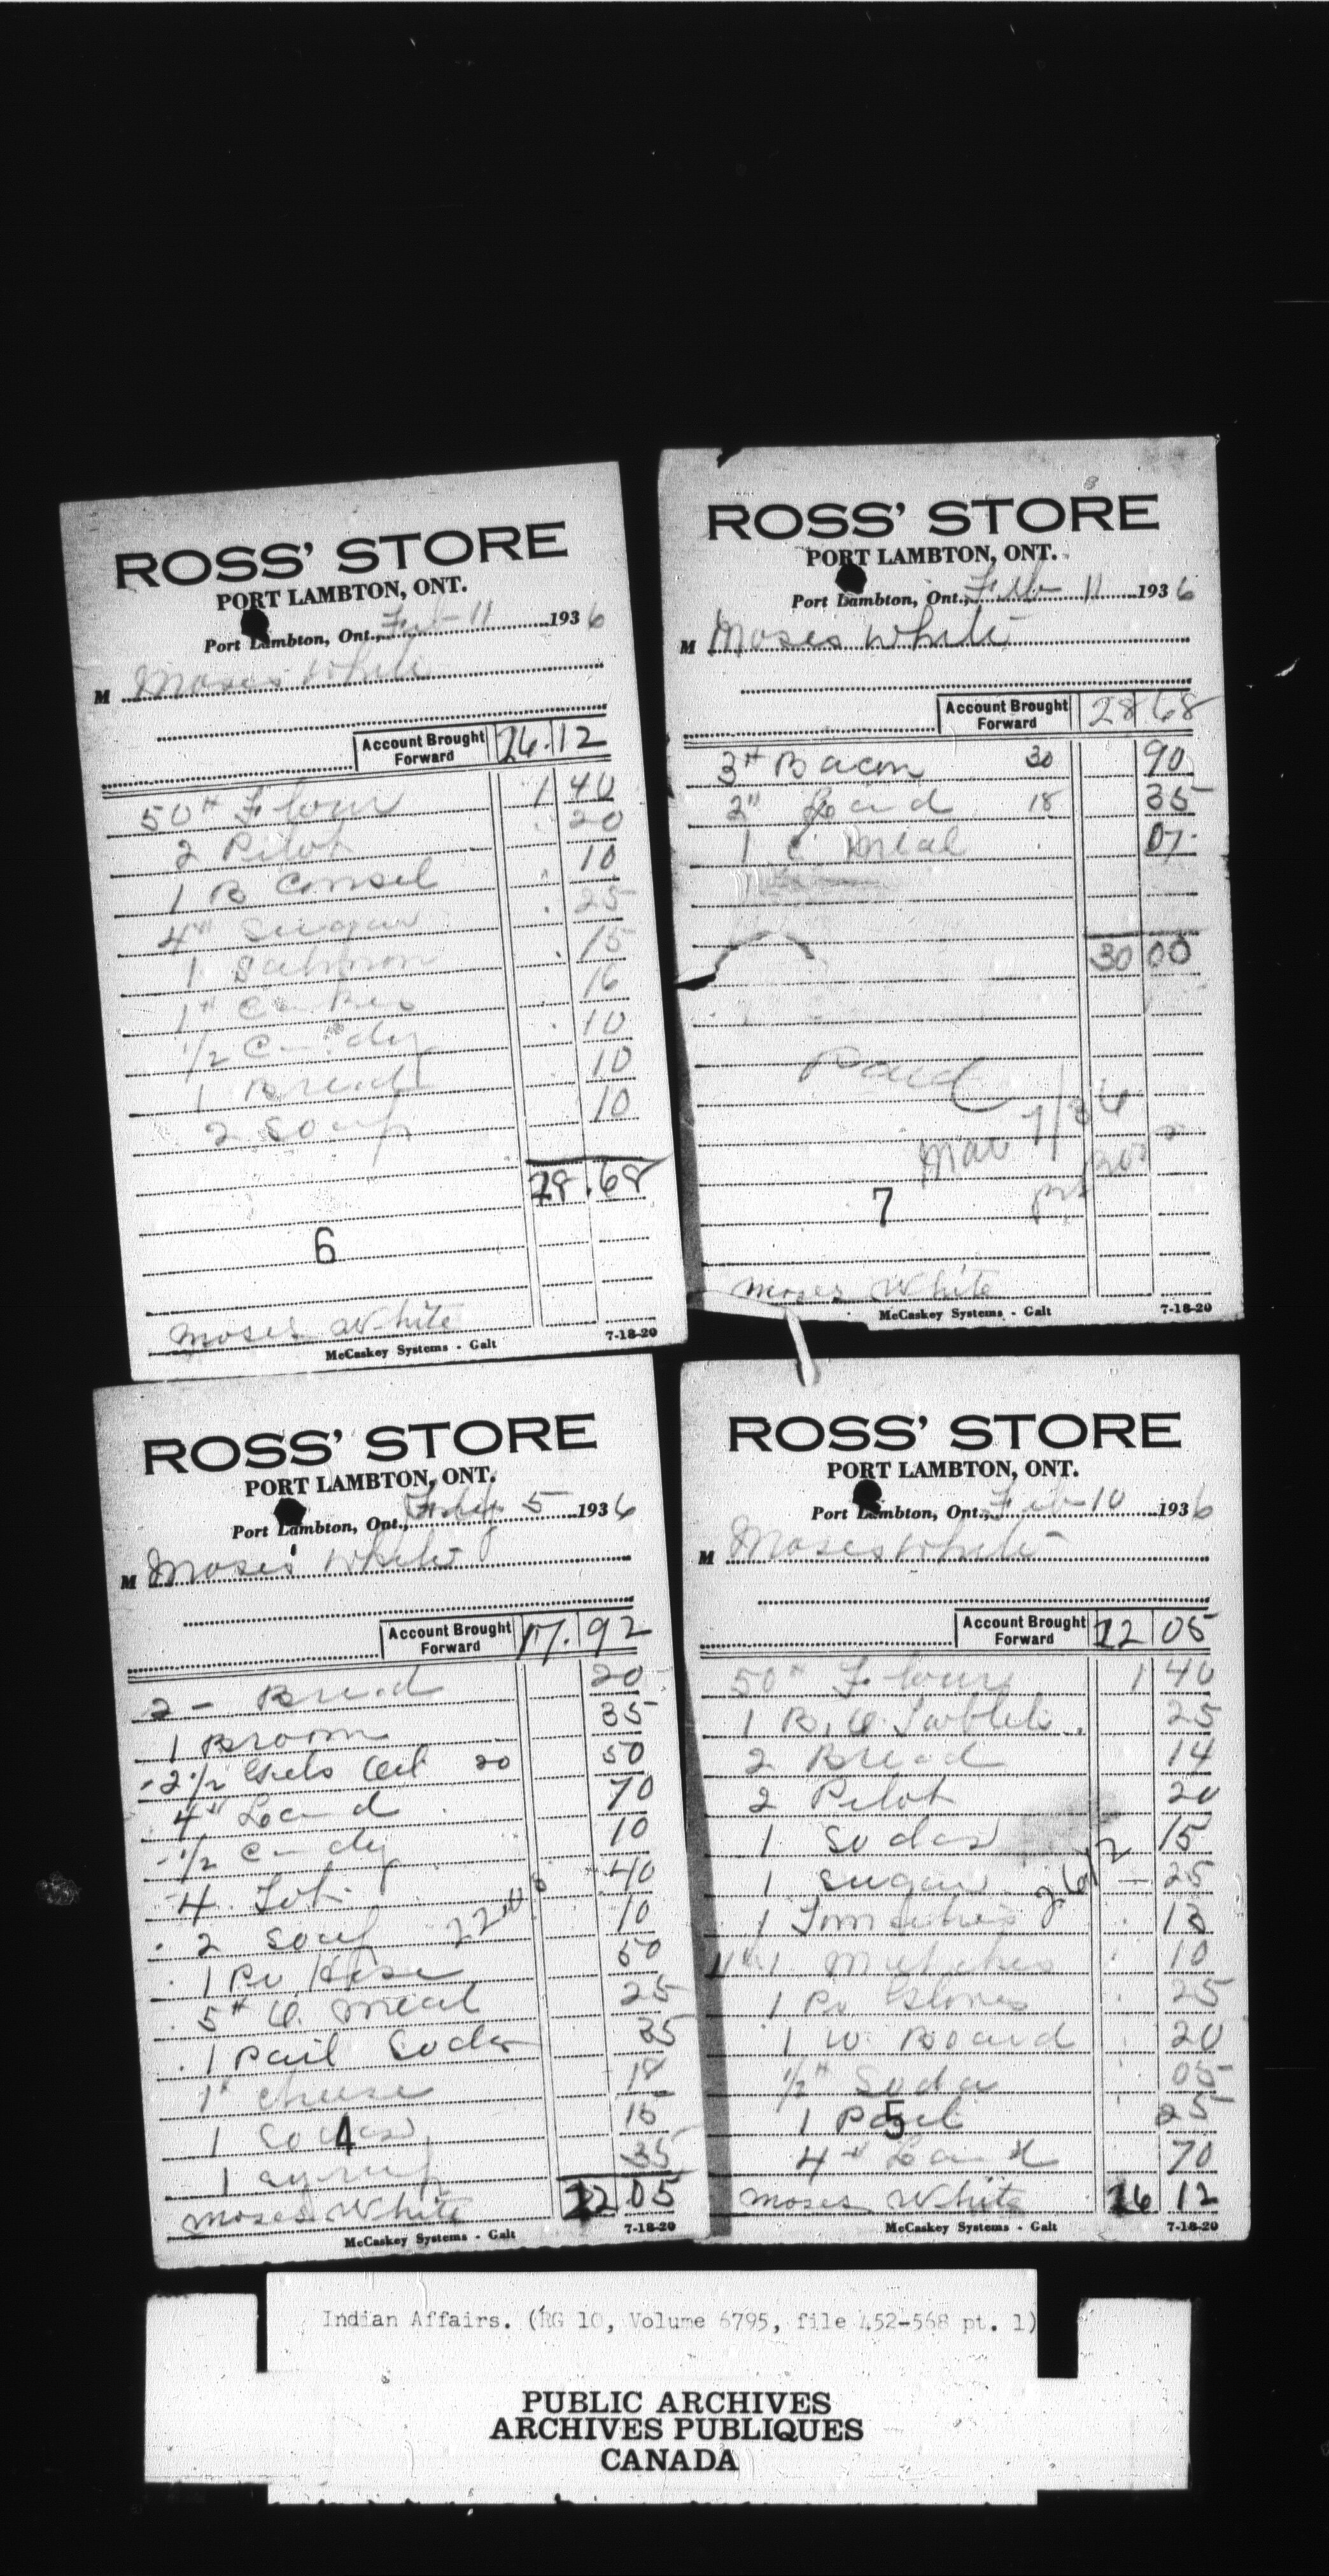 ROSS' STORE
PORT LAMBTON, ONT.
Port Lambton, Ont., Feb 11 1936
M Moses White
Account Brought Forward 26.12
50# Flour 1 40
2 Pilot 20
1 B Consel 10
4# Sugar 25
1 Salmon 15
1# Cakes 16
1/2 Candy 10
1 Bread 10
2 Soap 10
28.68
6
Moses White
McCaskey Systems - Galt 7-18-20
ROSS' STORE
PORT LAMBTON, ONT.
Port Lambton, Ont., Feb 11 1936
M Moses White
Account Brought Forward 28 68
3# Bacon 30 90
2" Lard 18 35
1 C Meal 07
30 00
Paid
Mar 7/36
7
Moses White
McCaskey Systems - Galt 7-18-20
ROSS' STORE
PORT LAMBTON, ONT.
Port Lambton, Ont., Feby 5 1936
M Moses White
Account Brought Forward 17.92
2 - Bread 20
1 Broom 35
2 1/2 Gals Oil 20 50
4# Lard 70
1/2 Candy 10
4 Tob. 40
2 Soap 10
1 Pr Hose 50
5# C. Meal 25
1 Pail Soda 35
1# Cheese 18
1 Sodas 15
4
1 Syrup 35
Moses White 22 05
McCaskey Systems - Galt 7-18-20
ROSS' STORE
PORT LAMBTON, ONT.
Port Lambton, Ont., Feb 10 1936
M Moses White
Account Brought Forward 22 05
50# Flour 1 40
1 B. Q. Tablets 25
2 Bread 14
2 Pilot 20
1 Sodas 15
1 Sugar 25
2612
1 Tomatoes 13
1 Matches 10
1 Pr Gloves 25
1 W. Board 20
1/2# Soda 05
1 Pail 25
5
4# Lard 70
Moses White 26 12
McCaskey Systems - Galt 7-18-20
Indian Affairs. (RG 10, Volume 6795, file 452-568 pt. 1)
PUBLIC ARCHIVES
ARCHIVES PUBLIQUES
CANADA